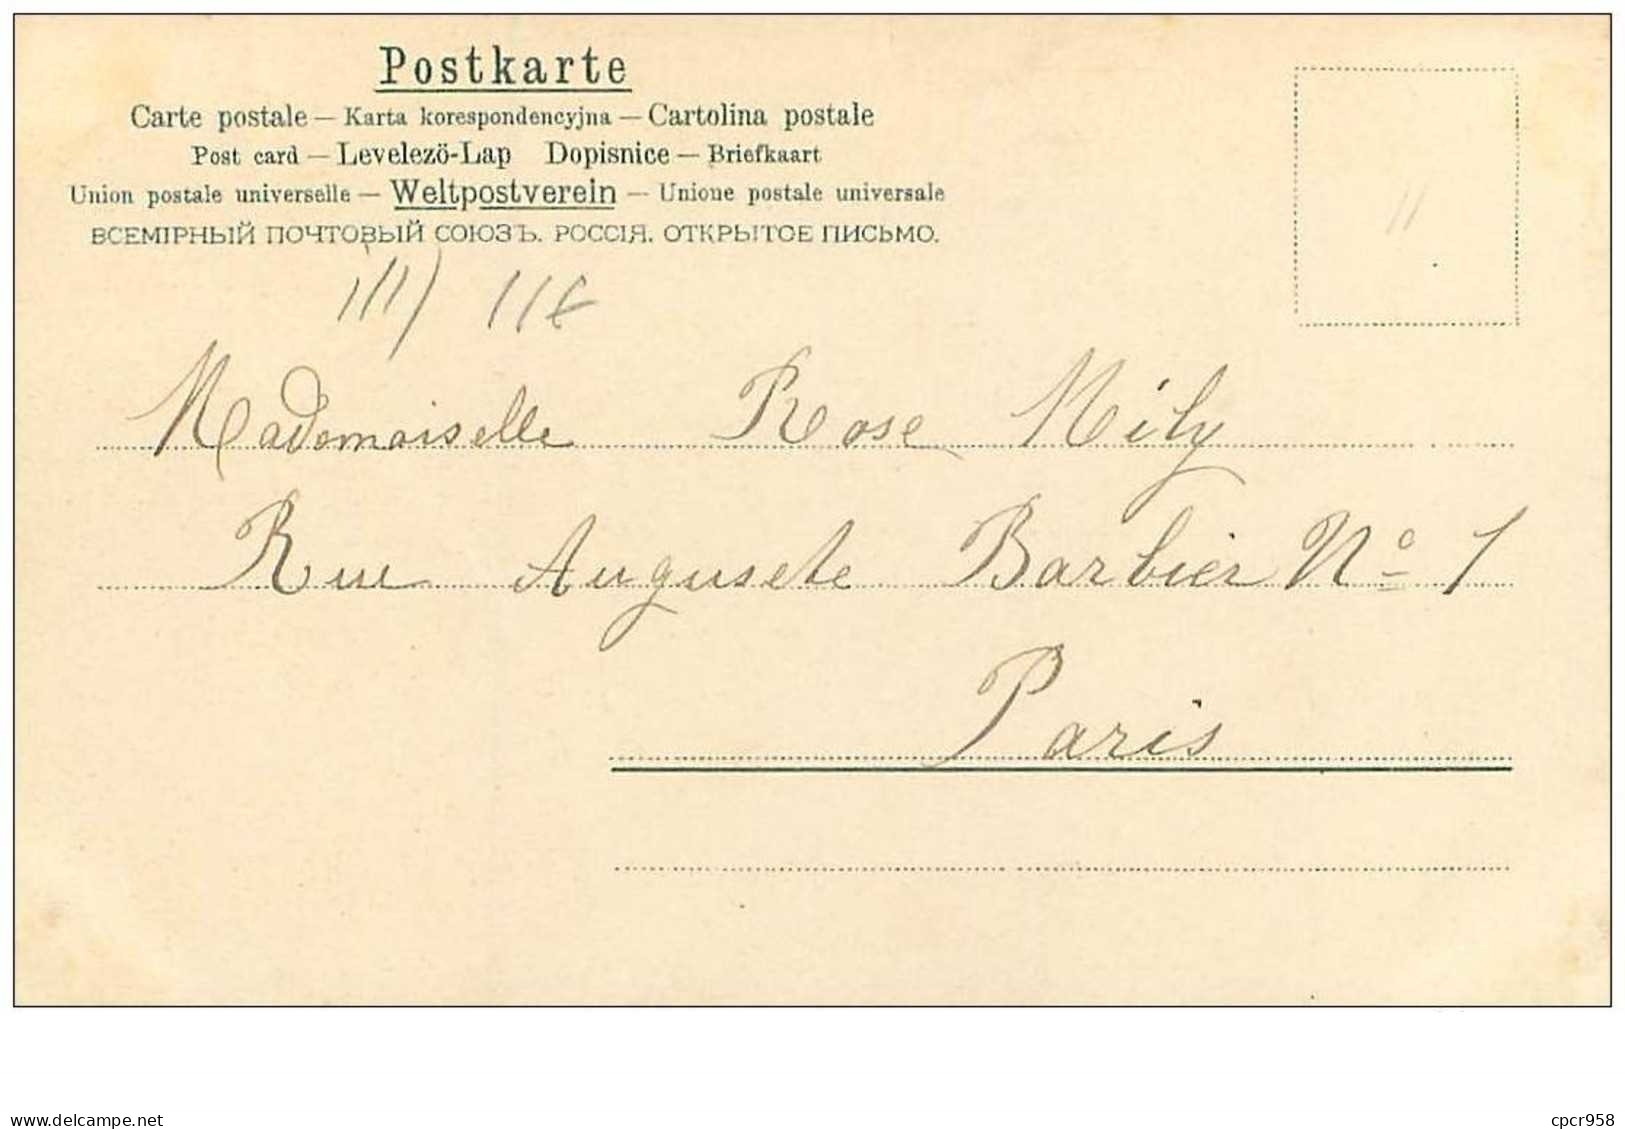 Postkarte
Carte postale — Karta korespondencyjna — Cartolina postale
Post card — Levelezö-Lap Dopisnice — Briefkaart
Union postale universelle — Weltpostverein — Unione postale universale
ВСЕМІРНЫЙ ПОЧТОВЫЙ СОЮЗЪ. РОССІЯ. ОТКРЫТОЕ ПИСЬМО.
11
Mademoiselle Rose Mily
Rue Auguste Barbier No 1
Paris
delcampe.net
cpcr958